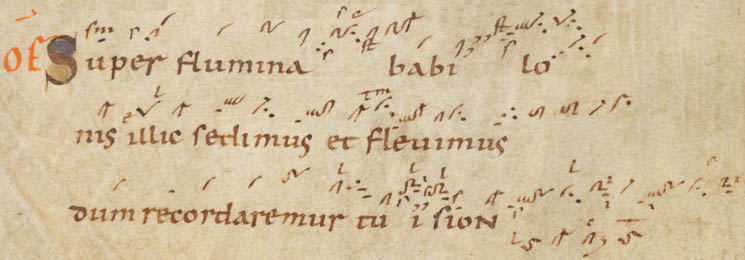 OF Super flumina babi lo
nis illic sedimus et flevimus
dum recordaremur tu i sion